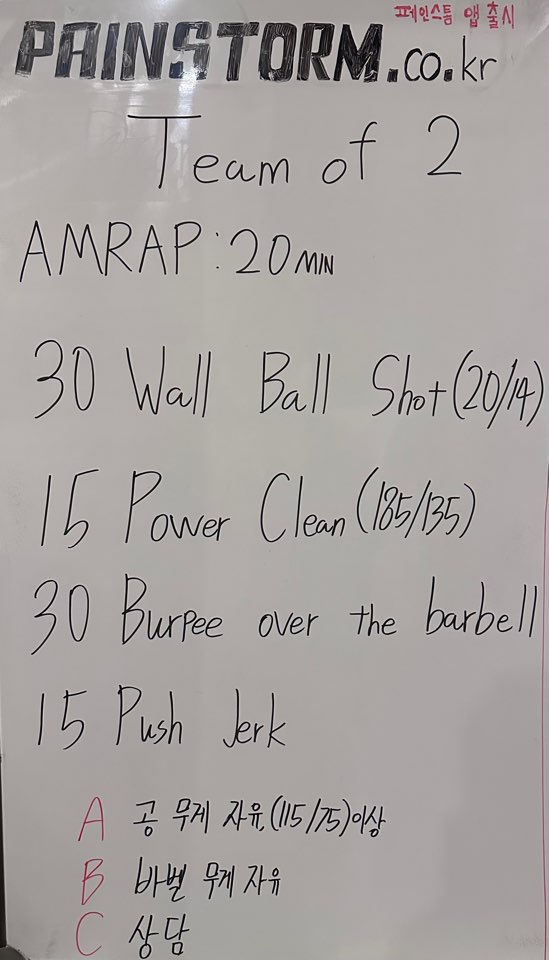 프레인스톰 앱 출시
PAINSTORM.co.kr
Team of 2
AMRAP : 20 MIN
30 Wall Ball Shot (20/14)
15 Power Clean (185/135)
30 Burpee over the barbell
15 Push Jerk
A 공 무게 자유, (115/75)이상
B 바벨 무게 자유
C 상담